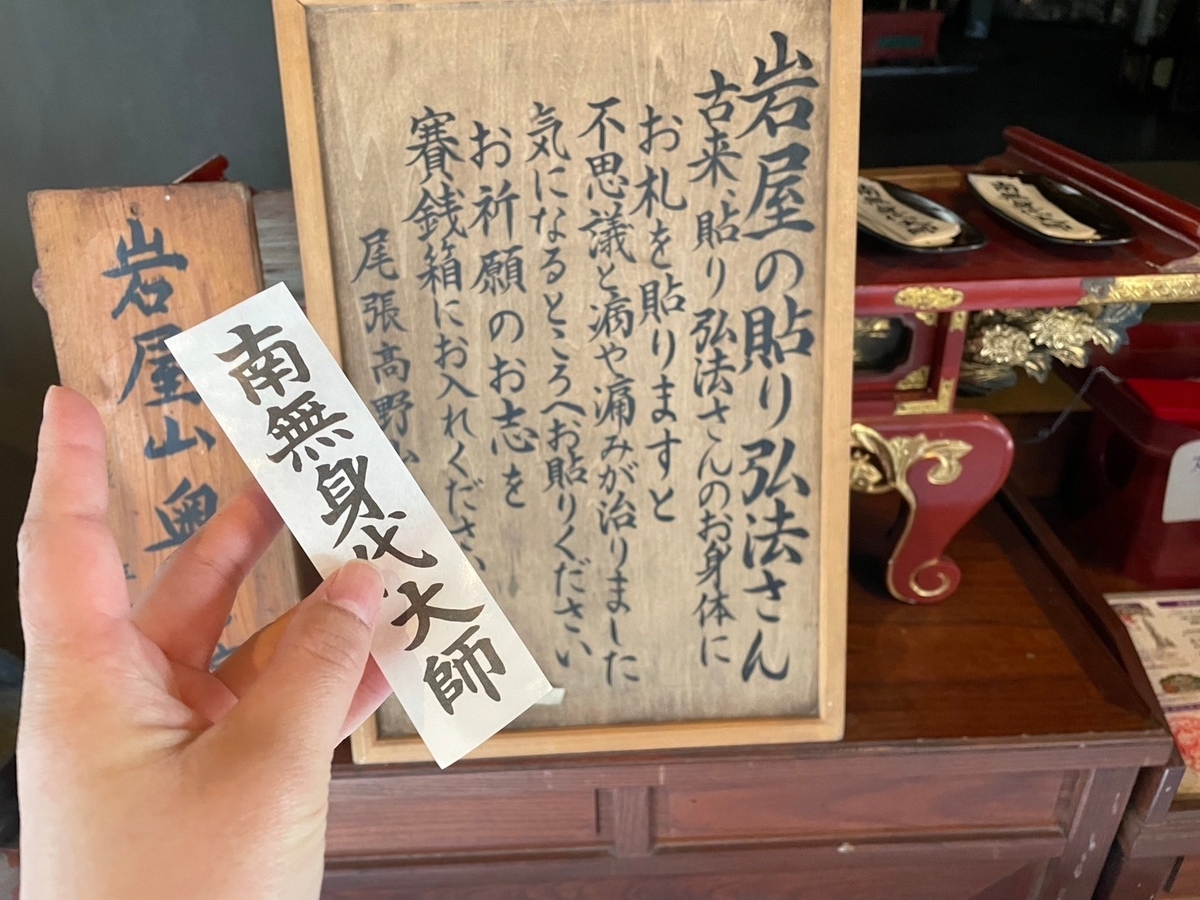 岩屋の貼り弘法さん
古来、貼り弘法さんのお身体に
お札を貼りますと
不思議と病や痛みが治りました
気になるところへお貼りください
お祈願のお志を
賽銭箱にお入れください
尾張高野山
南無身代大師
岩屋山奥